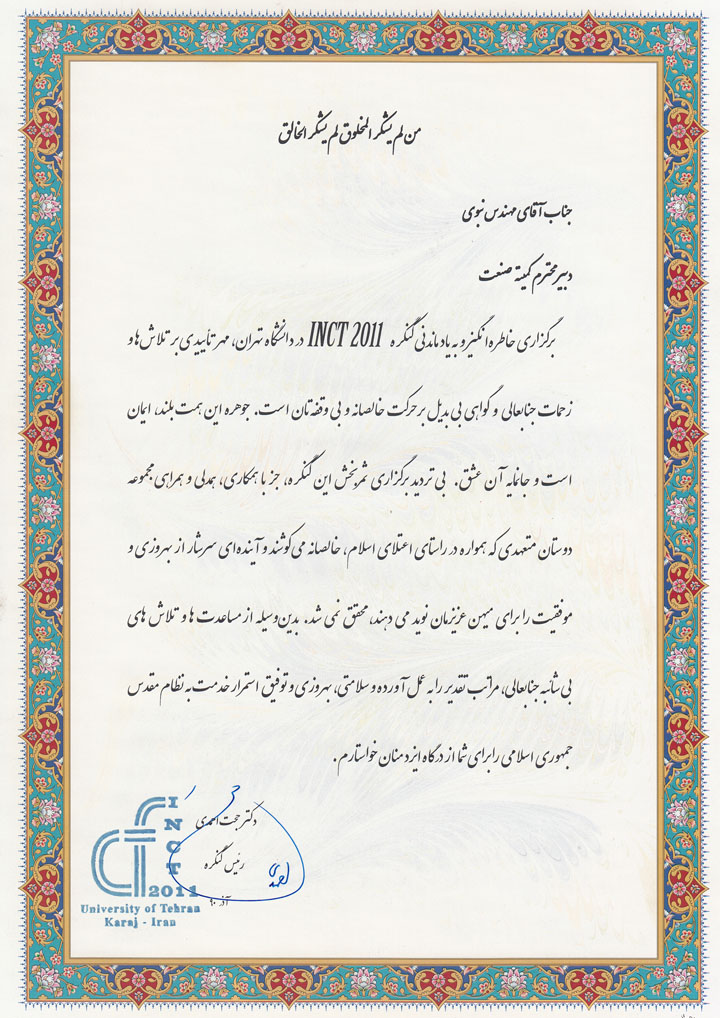 من لم یشکر المخلوق لم یشکر الخالق
جناب آقای مهندس نبوی
دبیر محترم کمیته صنعت
برگزاری خاطره انگیز و به یاد ماندنی کنگره INCT 2011 در دانشگاه تهران، مهر تأییدی بر تلاش ها و
زحمات جنابعالی و گواهی بی بدیل بر حرکت خالصانه و بی وقفه تان است. جوهره این همت بلند، ایمان
است و جانمایه آن عشق. بی تردید برگزاری ثمربخش این کنگره، جز با همکاری، همدلی و همراهی مجموعه
دوستان متعهدی که همواره در راستای اعتلای اسلام، خالصانه می کوشند و آینده ای سرشار از بهروزی و
موفقیت را برای میهن عزیزمان نوید می دهند، محقق نمی شد. بدین وسیله از مساعدت ها و تلاش های
بی شائبه جنابعالی، مراتب تقدیر را به عمل آورده و سلامتی، بهروزی و توفیق استمرار خدمت به نظام مقدس
جمهوری اسلامی را برای شما از درگاه ایزد منان خواستارم.
دکتر حجت احمدی
رئیس کنگره
آذر ۹۰
INCT
2011
University of Tehran
Karaj - Iran